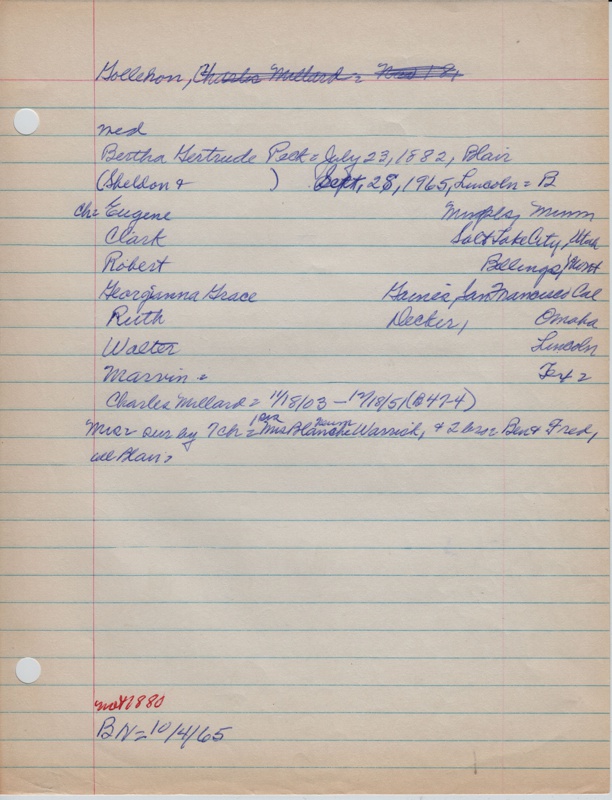 Gollehon, Charles Millard =
med
Bertha Gertrude Peck = July 23, 1882, Blair
(Sheldon & ) Sept, 28, 1965, Lincoln = B
ch = Eugene Minpls, Minn
Clark Salt Lake City, Utah
Robert Billings, Mont
Georgianna Grace Gaines, San Francisco Cal
Ruth Decker, Omaha
Walter Lincoln
Marvin = Tex =
Charles Millard = 11/18/03 – 12/18/51 (B47-4)
Misc = sur by 7 ch = 1 sis Mrs Blanche Warrick, & 2 bros Ben & Fred,
all Blair =
not 1880
BN = 10/4/65